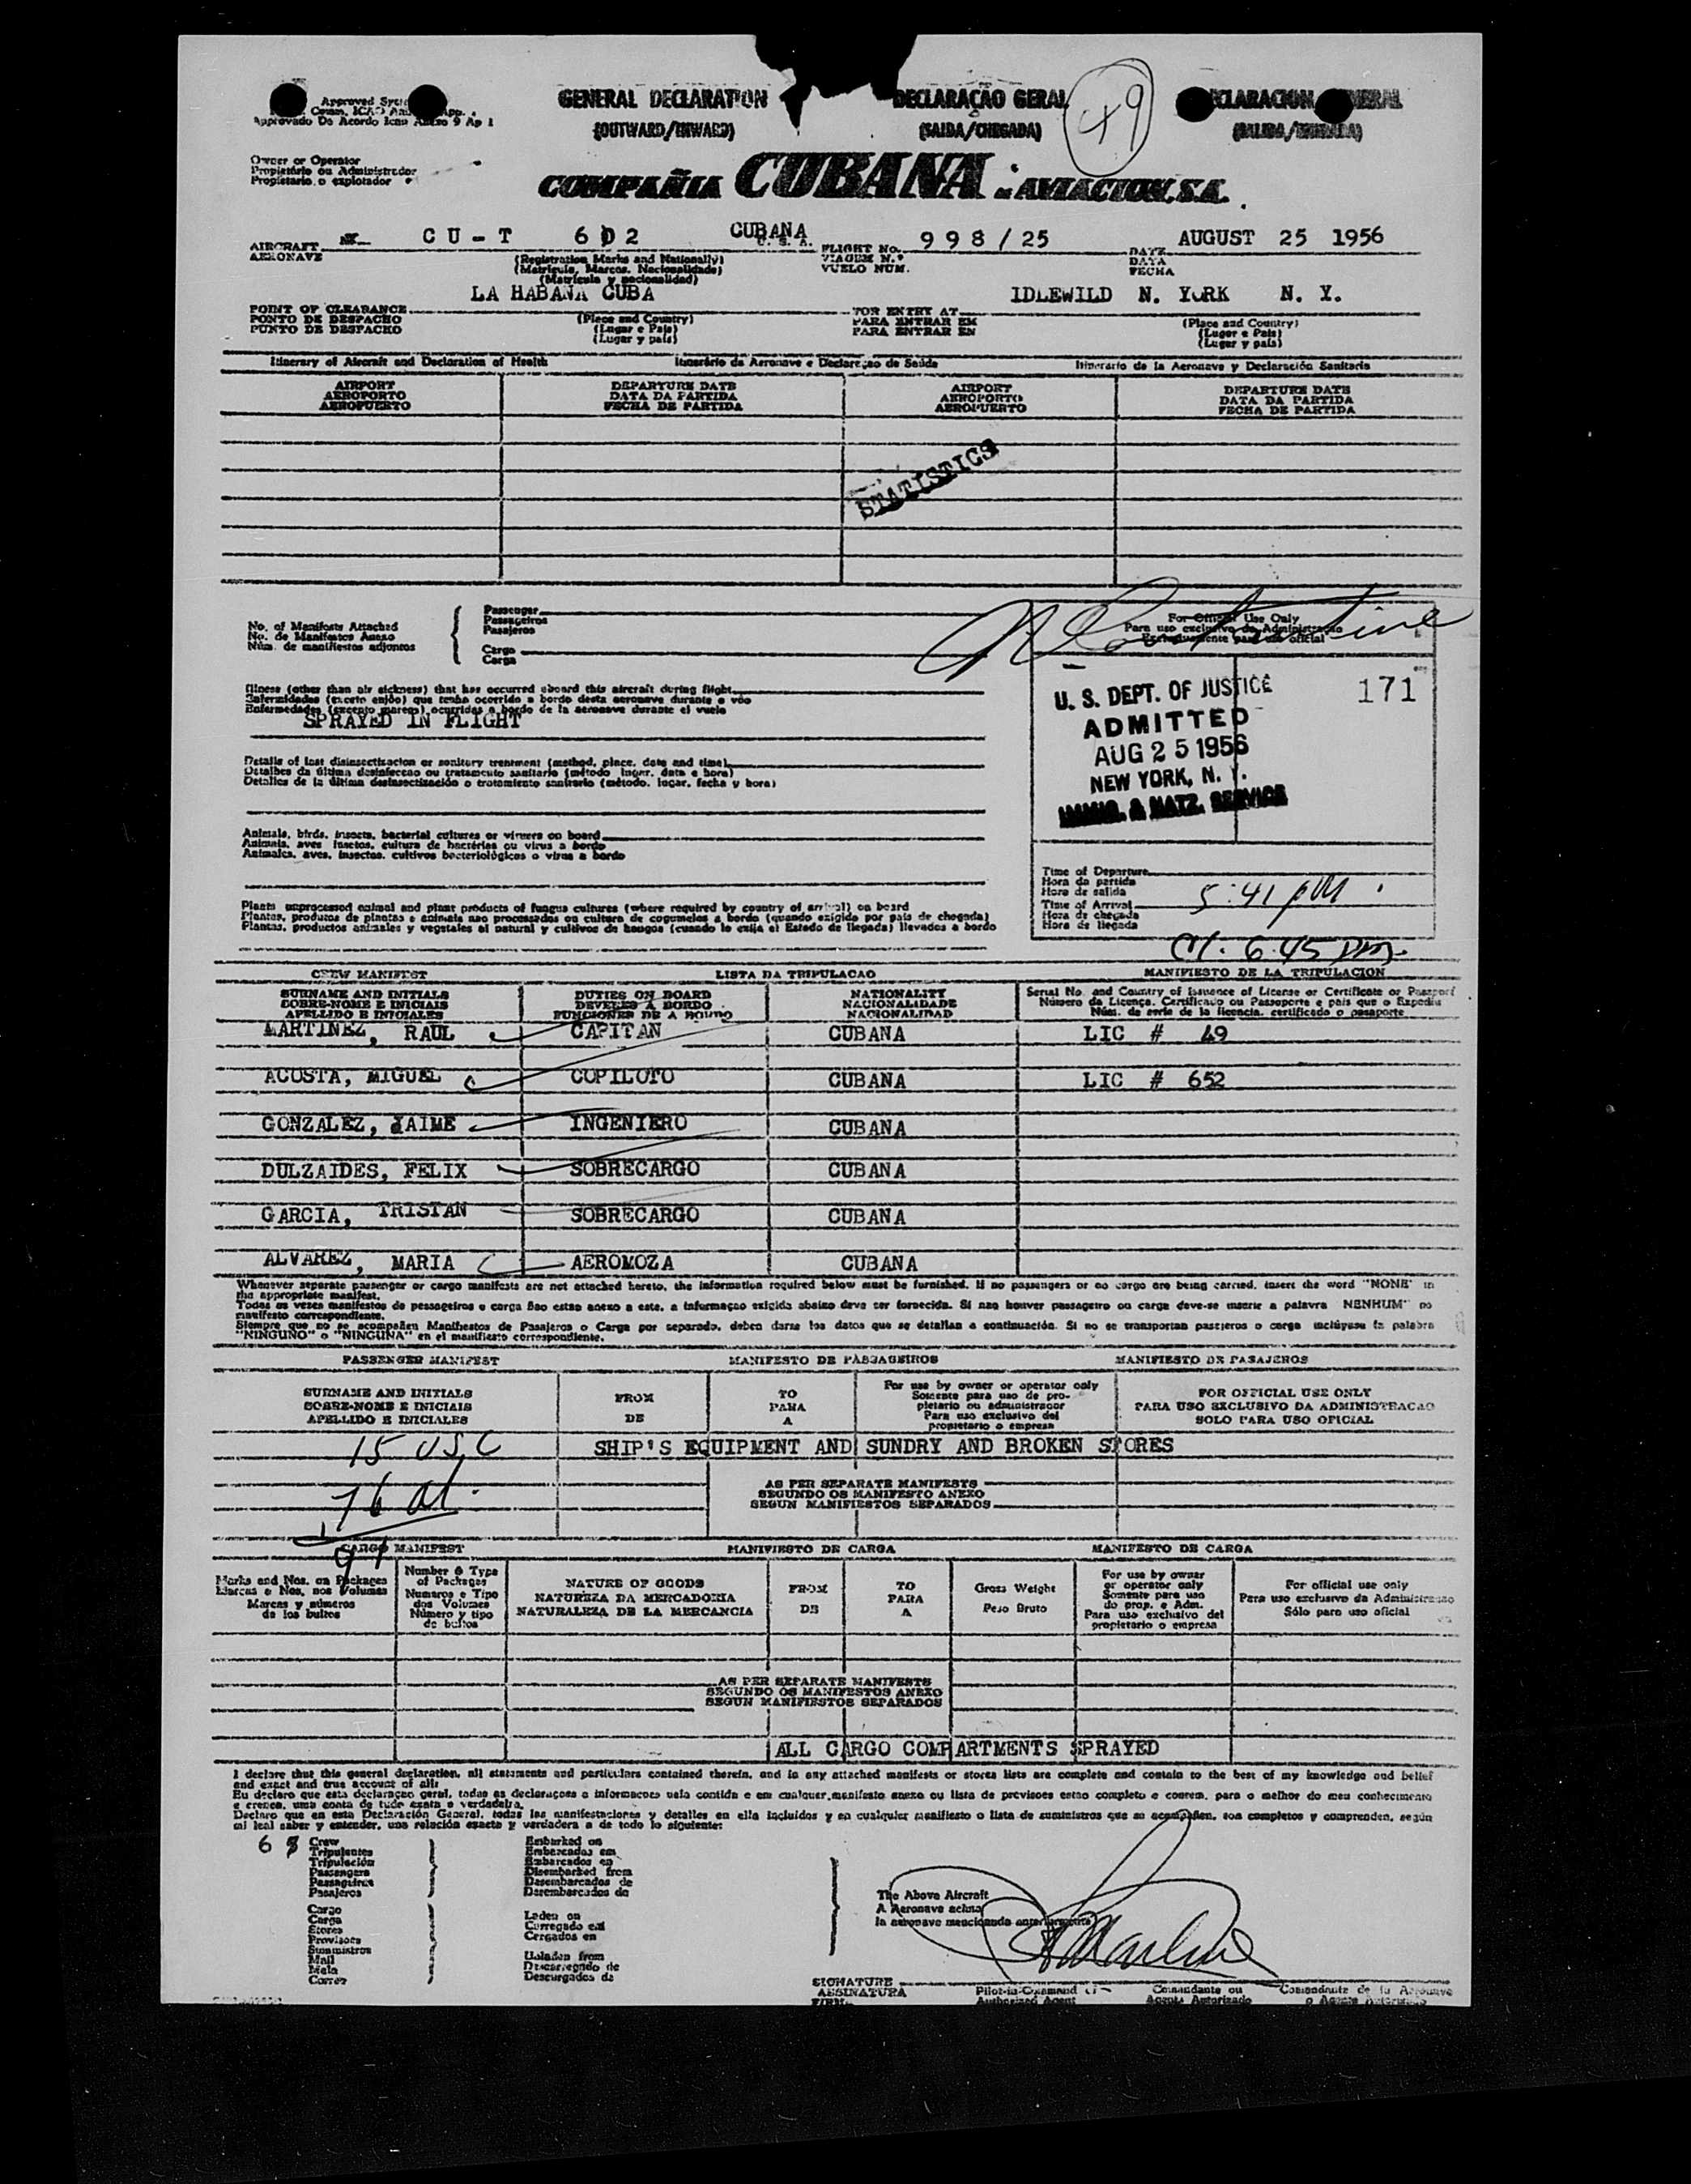 GENERAL DECLARATION
(OUTWARD/INWARD)
DECLARAÇÃO GERAL
(SAIDA/CHEGADA)
49
Approvado De Acordo Icao Anexo 9 Ap 1
Owner or Operator
Propietário ou Administrador
Propietario o explotador
COMPAÑIA CUBANA DE AVIACION, S.A.
AIRCRAFT CU-T 602 CUBANA FLIGHT No. 998/25 DATE AUGUST 25 1956
AERONAVE (Registration Marks and Nationality) VIAGEM N.º DATA
(Matricula, Marcas, Nacionalidade) VUELO NUM. FECHA
(Matricula y nacionalidad)
LA HABANA CUBA IDLEWILD N. YORK N. Y.
POINT OF CLEARANCE (Place and Country) FOR ENTRY AT (Place and Country)
PONTO DE DESPACHO (Lugar e Pais) PARA ENTRAR EM (Lugar e Pais)
PUNTO DE DESPACHO (Lugar y país) PARA ENTRAR EN (Lugar y país)
Itinerary of Aircraft and Declaration of Health Itinerário da Aeronave e Declaraçao de Saúde Itinerario de la Aeronave y Declaración Sanitaria
AIRPORT DEPARTURE DATE AIRPORT DEPARTURE DATE
AEROPORTO DATA DA PARTIDA AEROPORTO DATA DA PARTIDA
AEROPUERTO FECHA DE PARTIDA AEROPUERTO FECHA DE PARTIDA
STATISTICS
No. of Manifests Attached
No. de Manifestos Anexo
Núm. de manifiestos adjuntos
Passenger
Passageiros
Pasajeros
Cargo
Carga
For Official Use Only
Para uso exclusivo da Administração
Exclusivamente para uso oficial
Illness (other than air sickness) that has occurred aboard this aircraft during flight
Enfermidades (exceto enjôo) que tenha ocorrido a bordo desta aeronave durante o vôo
Enfermedades (excepto mareos) ocurridas a bordo de la aeronave durante el vuelo
SPRAYED IN FLIGHT
U. S. DEPT. OF JUSTICE
ADMITTED
AUG 25 1956
NEW YORK, N. Y.
IMMIG. & NATZ. SERVICE
171
Details of last disinsectizacion or sanitary treatment (method, place, date and time)
Detalhes da última desinfeccao ou tratamento sanitario (método lugar, data e hora)
Detalles de la última desinsectización o tratamiento sanitario (método, lugar, fecha y hora)
Animals, birds, insects, bacterial cultures or viruses on board
Animais, aves insetos, cultura de bactérias ou virus a bordo
Animales, aves, insectos, cultivos bacteriológicos o virus a bordo
Plants unprocessed animal and plant products of fungus cultures (where required by country of arrival) on board
Plantas, produtos de plantas e animais nao processados ou cultura de cogumelos a bordo (quando exigido por pais de chegada)
Plantas, productos animales y vegetales al natural y cultivos de hongos (cuando lo exija el Estado de llegada) llevados a bordo
Time of Departure
Hora da partida
Hora de salida
5:41 PM
Time of Arrival
Hora de chegada
Hora de llegada
6:45 PM
CREW MANIFEST LISTA DA TRIPULACAO MANIFIESTO DE LA TRIPULACION
SURNAME AND INITIALS DUTIES ON BOARD NATIONALITY Serial No. and Country of Issuance of License or Certificate or Passport
SOBRE-NOME E INICIAIS DEVERES A BORDO NACIONALIDADE Número da Licença, Certificado ou Passoporte e pais que o Expediu
APELLIDO E INICIALES FUNCIONES DE A BORDO NACIONALIDAD Núm. de serie de la licencia, certificado o pasaporte
MARTINEZ, RAUL CAPITAN CUBANA LIC # 49
ACOSTA, MIGUEL COPILOTO CUBANA LIC # 652
GONZALEZ, JAIME INGENIERO CUBANA
DULZAIDES, FELIX SOBRECARGO CUBANA
GARCIA, TRISTAN SOBRECARGO CUBANA
ALVAREZ, MARIA AEROMOZA CUBANA
Whenever separate passenger or cargo manifests are not attached hereto, the information required below must be furnished. If no passengers or no cargo are being carried, insert the word "NONE" in
the appropriate manifest.
Todas as vezes manifestos de passageiros e carga ñao estao anexo a este, a informaçao exigida abaixo deve ser fornecida. Si nao houver passageiro ou carga deve-se inserir a palavra NENHUM" no
manifesto correspondiente.
Siempre que no se acompañen Manifiestos de Pasajeros o Carga por separado, deben darse los datos que se detallan a continuación. Si no se transportan pasajeros o carga inclúyase la palabra
"NINGUNO" o "NINGUNA" en el manifiesto correspondiente.
PASSENGER MANIFEST MANIFESTO DE PASSAGEIROS MANIFIESTO DE PASAJEROS
SURNAME AND INITIALS FROM TO For use by owner or operator only FOR OFFICIAL USE ONLY
SOBRE-NOME E INICIAIS PARA Somente para uso de pro- PARA USO EXCLUSIVO DA ADMINISTRACAO
APELLIDO E INICIALES DE A pletario ou administrador SOLO PARA USO OFICIAL
Para uso exclusivo del
propietario o empresa
15 USC SHIP'S EQUIPMENT AND SUNDRY AND BROKEN STORES
76 al.
91
AS PER SEPARATE MANIFESTS
SEGUNDO OS MANIFESTO ANEXO
SEGUN MANIFIESTOS SEPARADOS
CARGO MANIFEST MANIFIESTO DE CARGA MANIFESTO DE CARGA
Marks and Nos. on Packages
Marcas e Nos. nos Volumes
Marcas y números
de los bultos
Number & Type
of Packages
Numeros e Tipo
dos Volumes
Número y tipo
de bultos
NATURE OF GOODS
NATUREZA DA MERCADORIA
NATURALEZA DE LA MERCANCIA
FROM
DE
TO
PARA
A
Gross Weight
Peso Bruto
For use by owner
or operator only
Somente para uso
do prop. e Adm.
Para uso exclusivo del
propietario o empresa
For official use only
Para uso exclusivo da Administracao
Sólo para uso oficial
AS PER SEPARATE MANIFESTS
SEGUNDO OS MANIFESTOS ANEXO
SEGUN MANIFIESTOS SEPARADOS
ALL CARGO COMPARTMENTS SPRAYED
I declare that this general declaration, all statements and particulars contained therein, and in any attached manifests or stores lists are complete and contain to the best of my knowledge and belief
and exact and true account of all:
Eu declaro que esta declaraçao geral, todas as declaraçoes e informacoes nela contida e em cualquer manifesto anexo ou lista de previsoes estao completo e contem, para o melhor do meu conhecimento
e crenca, uma conta de tudo exata e verdadeira.
Declaro que en esta Declaración General, todas las manifestaciones y detalles en ella incluidos y en cualquier manifiesto o lista de suministros que se acompañen, son completos y comprenden, según
mi leal saber y entender, una relación exacta y verdadera a de todo lo siguiente:
6
Crew
Tripulantes
Tripulación
Passengers
Passageiros
Pasajeros
Embarked on
Embarcados em
Embarcados en
Disembarked from
Desembarcados de
Desembarcados de
Cargo
Carga
Stores
Provisoes
Suministros
Mail
Mala
Correo
Laden on
Carregado em
Cargados en
Unladen from
Descarregado de
Descargados de
The Above Aircraft
A Aeronave acima
la aeronave mencionada anteriormente
SIGNATURE
ASSINATURA
Pilot-in-Command
Authorized Agent
Comandante ou
Agente Autorizado
Comandante de la Aeronave
o Agente Autorizado